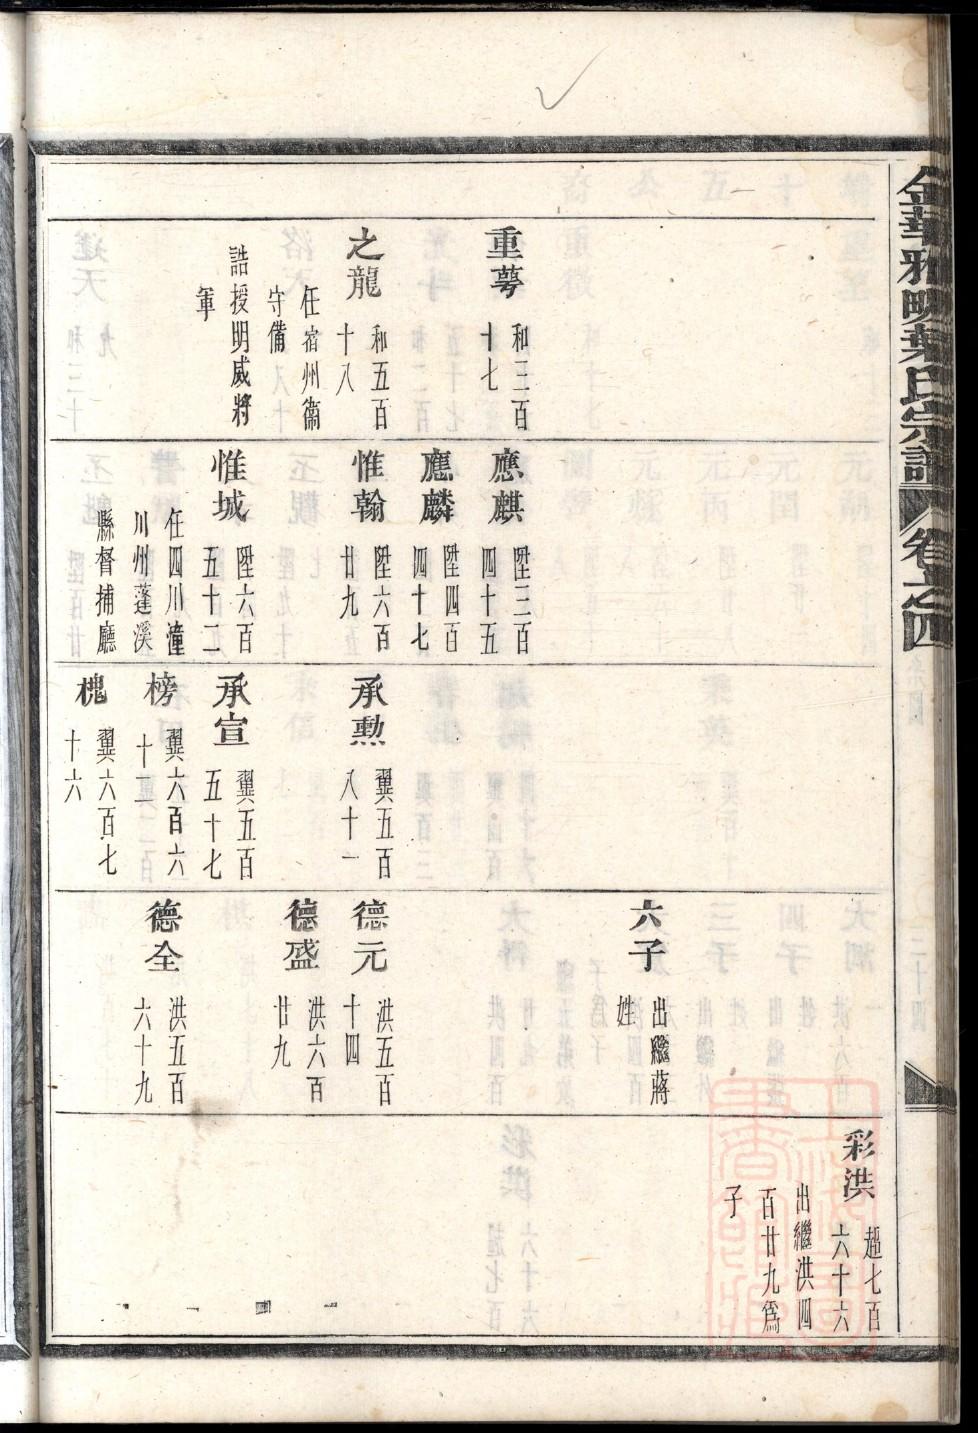 金華雅畈葉氏宗譜 卷之四
重蕚
和三百
十七
之龍
和五百
十八
任宿州衞
守備
誥授明威將
軍
應麒
陞三百
四十五
應麟
陞四百
四十七
惟翰
陞六百
廿九
惟城
陞六百
五十二
任四川潼
川州蓬溪
縣督捕廳
承勲
翼五百
八十一
承宣
翼五百
五十七
榜
翼六百六
十二
槐
翼六百七
十六
六子
出繼蔣
姓
德元
洪五百
十四
德盛
洪六百
廿九
德全
洪五百
六十九
彩洪
趙七百
六十六
出繼洪四
百廿九爲
子